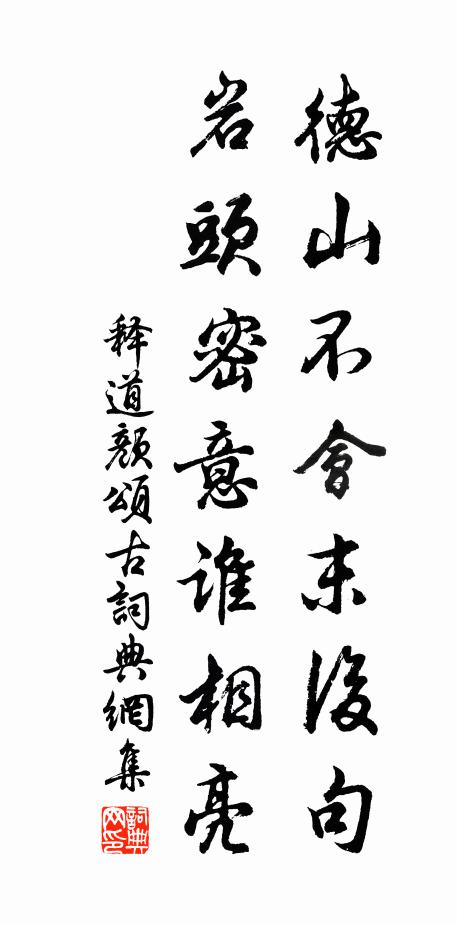 德山不會末後句
岩頭密意誰相亮
释道顏頌古詞典網集
詞典网印